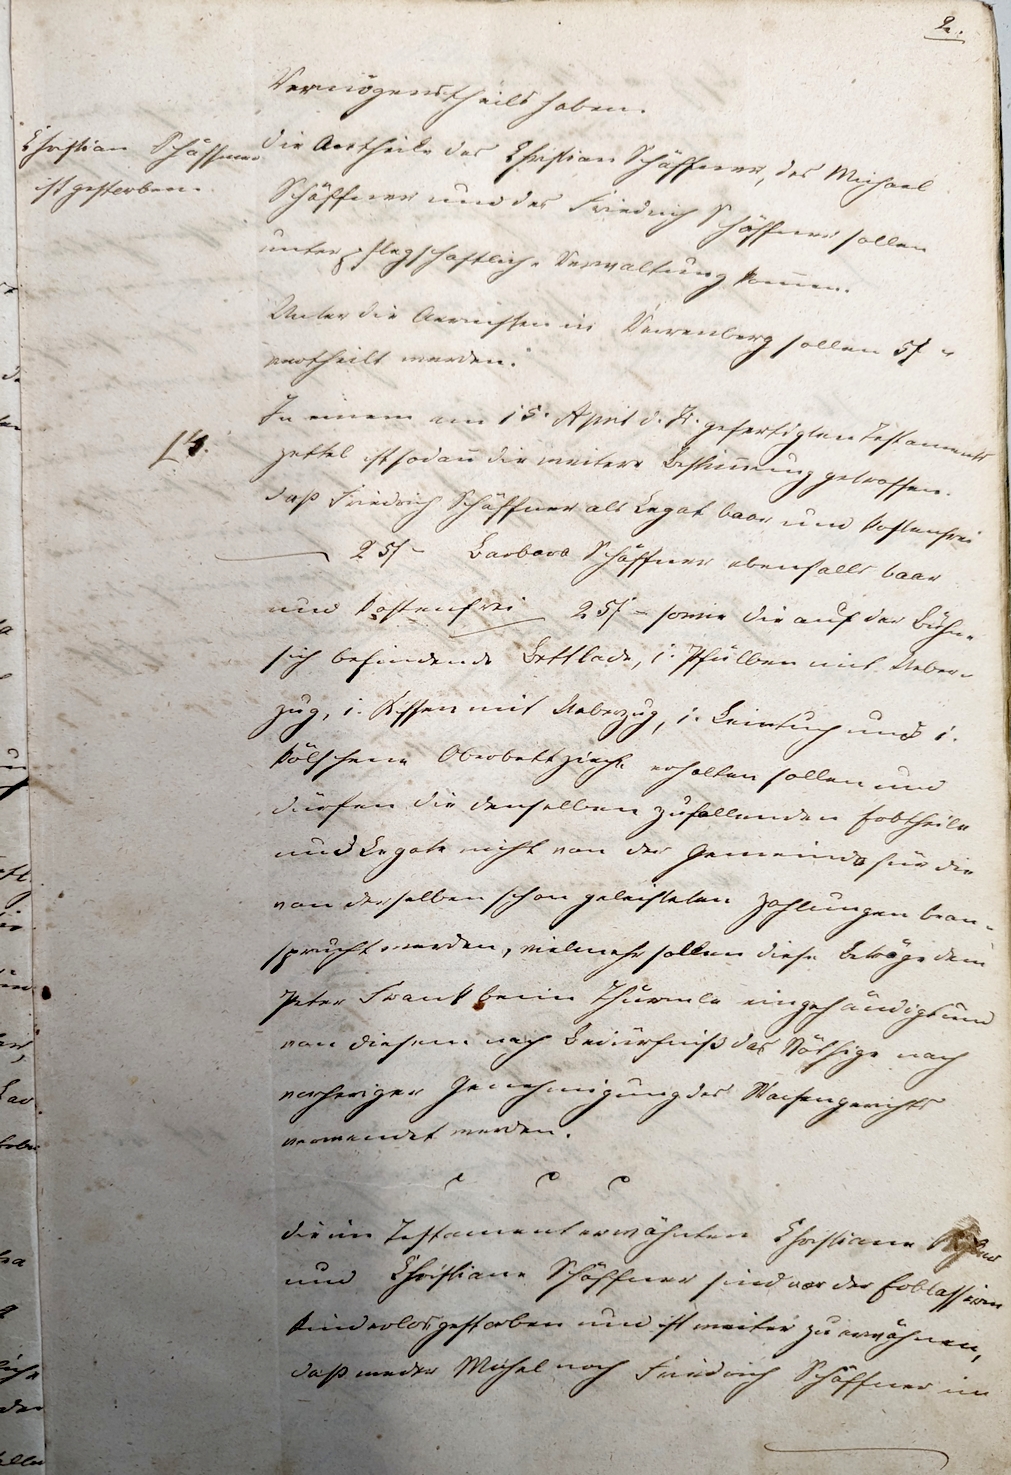 2.
Vermögenstheils haben.
Christian Schäffner
ist gestorben.
Die Antheile des Christian Schäffner, des Michael
Schäffner und des Friedrich Schäffner sollen
unter pflegschaftliche Verwaltung kommen.
Unter die Aermsten in Neuenberg sollen 5f –
vertheilt werden.
In einem am 15. April d. J. gefertigten Testaments
zettel ist sodann die weitere Bestimmung getroffen.
daß Friedrich Schäffner als Legat baar und kostenfrei
25f – Barbara Schäffner ebenfalls baar
und kostenfrei 25f – sowie die auf der Bühne
sich befindende Bettlade, 1. Pfülben mit Ueber-
zug, 1. Kissen mit Ueberzug, 1. Leintuch und 1.
kölschene Oberbettzieche erhalten sollen und
dürfen die denselben zufallenden Erbtheile
und Legate nicht von der Gemeinde für die
von derselben schon geleisteten Zahlungen bean-
sprucht werden, vielmehr sollen diese Beträge dem
Peter Frank beim Thürmle eingehändigt und
von diesem nach Bedürfniß das Nöthige nach
vorheriger Genehmigung des Waisengerichts
verwendet werden.
Die im Testament erwähnten Christiane
und Christiane Schäffner sind vor der Erblasserin
kinderlos gestorben und ist weiter zu erwähnen,
daß weder Michel noch Friedrich Schäffner im